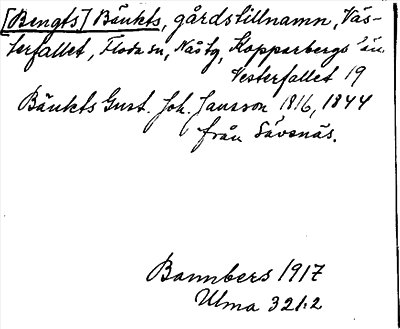 [Bengts] Bänkts, gårdstillnamn, Väs-
terfallet, Floda sn, Nås tg, Kopparbergs län
Vesterfallet 19
Bänkts Gust. Joh. Jansson 1816, 1844
från Säfsnäs.
Bannbers 1917
Ulma 321:2